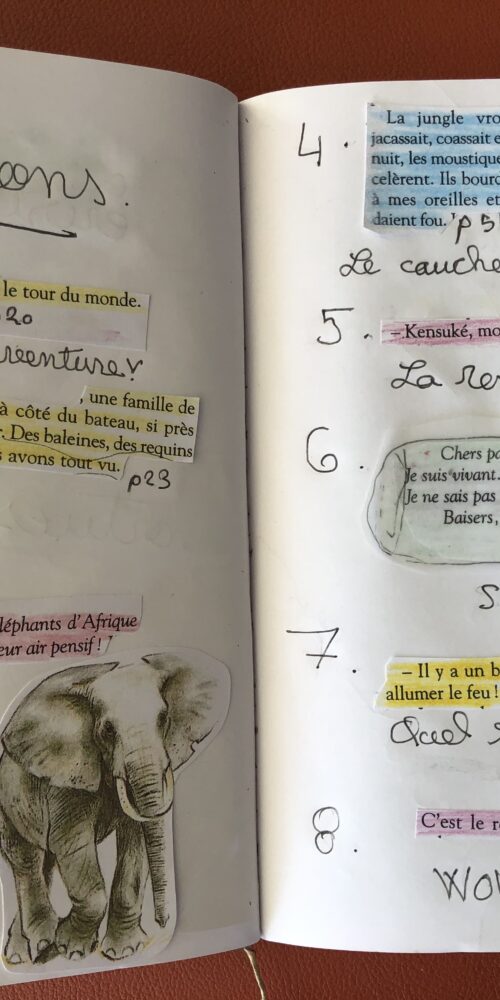 le tour du monde.
, une famille de
à côté du bateau, si près
Des baleines, des requins
avons tout vu.
p23
léphants d'Afrique
eur air pensif !
4.
La jungle vro
jacassait, coassait e
nuit, les moustique
celèrent. Ils bourd
à mes oreilles et
daient fou.
Le cauche
5.
– Kensuké, mo
La re
6.
Chers pa
Je suis vivant.
Je ne sais pas
Baisers,
S
7.
– Il y a un b
allumer le feu !
Quel s
8.
C'est le r
WOW